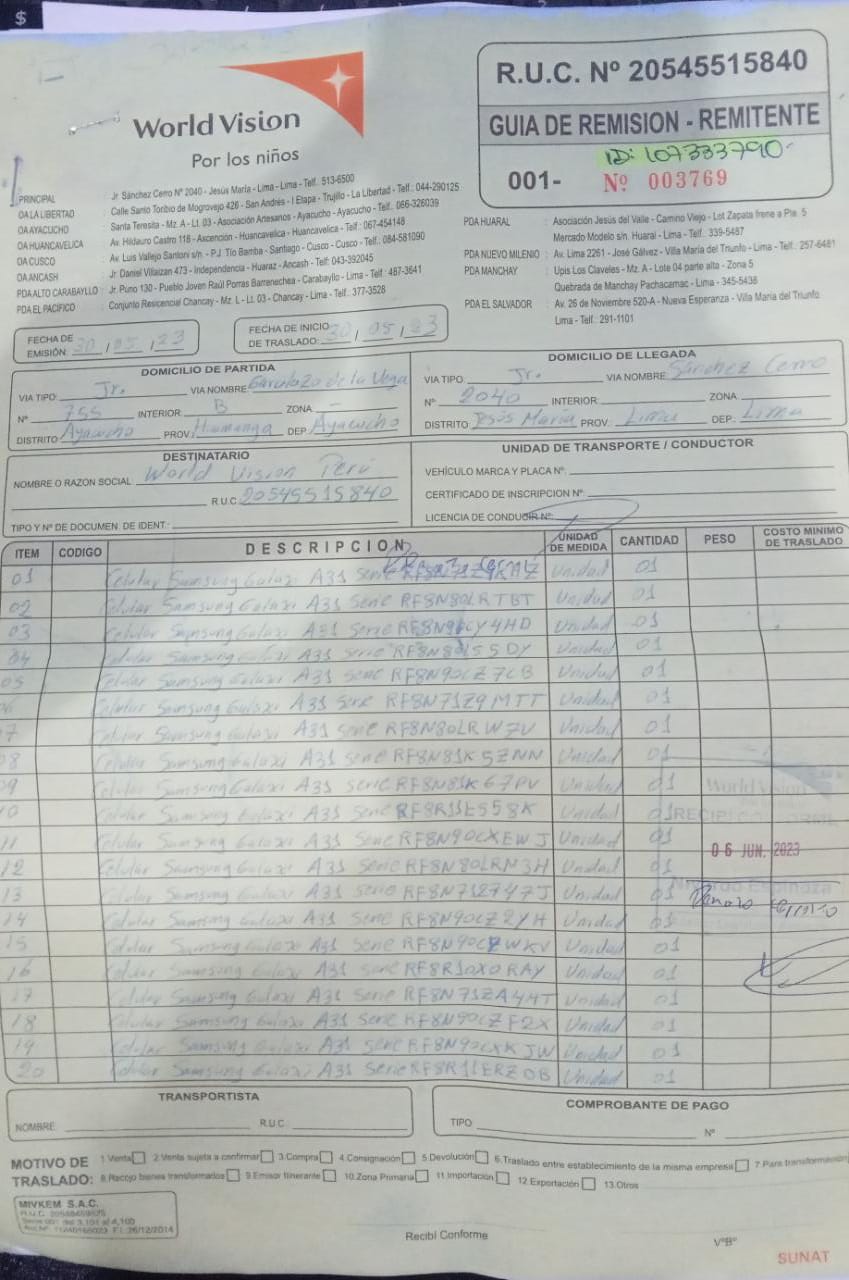 $
World Vision
Por los niños
R.U.C. Nº 20545515840
GUIA DE REMISION - REMITENTE
ID: 107333790
001- Nº 003769
PRINCIPAL : Jr. Sánchez Cerro Nº 2040 - Jesús María - Lima - Lima - Telf.: 513-6500
OA LA LIBERTAD : Calle Santo Toribio de Mogrovejo 426 - San Andrés - I Etapa - Trujillo - La Libertad - Telf.: 044-290125
OA AYACUCHO : Santa Teresita - Mz. A - Lt. 03 - Asociación Artesanos - Ayacucho - Ayacucho - Telf.: 066-326039
OA HUANCAVELICA : Av. Hildauro Castro 118 - Ascención - Huancavelica - Huancavelica - Telf.: 067-454148
OA CUSCO : Av. Luis Vallejo Santoni s/n - P.J. Tío Bamba - Santiago - Cusco - Cusco - Telf.: 084-581090
OA ANCASH : Jr. Daniel Villaizan 473 - Independencia - Huaraz - Ancash - Telf: 043-392045
PDA ALTO CARABAYLLO : Jr. Puno 130 - Pueblo Joven Raúl Porras Barrenechea - Carabayllo - Lima - Telf.: 487-3641
PDA EL PACÍFICO : Conjunto Residencial Chancay - Mz. L - Lt. 03 - Chancay - Lima - Telf.: 377-3528
PDA HUARAL : Asociación Jesús del Valle - Camino Viejo - Lot Zapata frene a Pte. 5
Mercado Modelo s/n. Huaral - Lima - Telf.: 339-5487
PDA NUEVO MILENIO : Av. Lima 2261 - José Gálvez - Villa María del Triunfo - Lima - Telf.: 257-6481
PDA MANCHAY : Upis Los Claveles - Mz. A - Lote 04 parte alta - Zona 5
Quebrada de Manchay Pachacamac - Lima - 345-5438
PDA EL SALVADOR : Av. 26 de Noviembre 520-A - Nueva Esperanza - Villa María del Triunfo
Lima - Telf.: 291-1101
FECHA DE EMISIÓN: 30 / 05 / 23
FECHA DE INICIO DE TRASLADO: 30 / 05 / 23
DOMICILIO DE PARTIDA
VIA TIPO: Jr. VIA NOMBRE: Garcilazo de la Vega
Nº 755 INTERIOR: B ZONA -
DISTRITO Ayacucho PROV. Huamanga DEP. Ayacucho
DOMICILIO DE LLEGADA
VIA TIPO: Jr. VIA NOMBRE: Sánchez Cerro
Nº 2040 INTERIOR: ZONA:
DISTRITO: Jesús María PROV.: Lima DEP.: Lima
DESTINATARIO
NOMBRE O RAZON SOCIAL: World Vision Perú
R.U.C. 20545515840
TIPO Y Nº DE DOCUMEN. DE IDENT.:
UNIDAD DE TRANSPORTE / CONDUCTOR
VEHÍCULO MARCA Y PLACA Nº:
CERTIFICADO DE INSCRIPCION Nº:
LICENCIA DE CONDUCIR Nº:
ITEM CODIGO DESCRIPCION UNIDAD DE MEDIDA CANTIDAD PESO COSTO MINIMO DE TRASLADO
01 Celular Samsung Galaxi A31 Serie Unidad 01
02 Celular Samsung Galaxi A31 Serie RF8N80LRTBT Unidad 01
03 Celular Samsung Galaxi A31 Serie Unidad 01
04 Celular Samsung Galaxi A31 Serie Unidad 01
05 Celular Samsung Galaxi A31 Serie RF8N90CZ7CB Unidad 01
6 Celular Samsung Galaxi A31 Serie RF8N71Z9MTT Unidad 01
7 Celular Samsung Galaxi A31 Serie RF8N80LRW7V Unidad 01
08 Celular Samsung Galaxi A31 Serie RF8N81K5ZNN Unidad 01
09 Celular Samsung Galaxi A31 Serie RF8N81K67PV Unidad 01
10 Celular Samsung Galaxi A31 Serie RF8R11E558K Unidad 01
11 Celular Samsung Galaxi A31 Serie RF8N90CXEWJ Unidad 01
12 Celular Samsung Galaxi A31 Serie RF8N80LRN3H Unidad 01
13 Celular Samsung Galaxi A31 Serie RF8N71Z747J Unidad 01
14 Celular Samsung Galaxi A31 Serie RF8N90CZ2YH Unidad 01
15 Celular Samsung Galaxi A31 Serie RF8N90CZWKV Unidad 01
16 Celular Samsung Galaxi A31 Serie RF8R10X0RAY Unidad 01
17 Celular Samsung Galaxi A31 Serie RF8N71ZA4HT Unidad 01
18 Celular Samsung Galaxi A31 Serie RF8N90CZF2X Unidad 01
19 Celular Samsung Galaxi A31 Serie RF8N90CXKJW Unidad 01
20 Celular Samsung Galaxi A31 Serie RF8R11ERZ0B Unidad 01
World Vision
06 JUN. 2023
TRANSPORTISTA
NOMBRE: R.U.C.
COMPROBANTE DE PAGO
TIPO Nº
MOTIVO DE TRASLADO:
1.Venta 2.Venta sujeta a confirmar 3.Compra 4.Consignación 5.Devolución 6.Traslado entre establecimiento de la misma empresa 7.Para transformación
8.Recojo bienes transformados 9.Emisor Itinerante 10.Zona Primaria 11.Importación 12.Exportación 13.Otros
MIVKEM S.A.C.
Recibí Conforme
VºBº
SUNAT